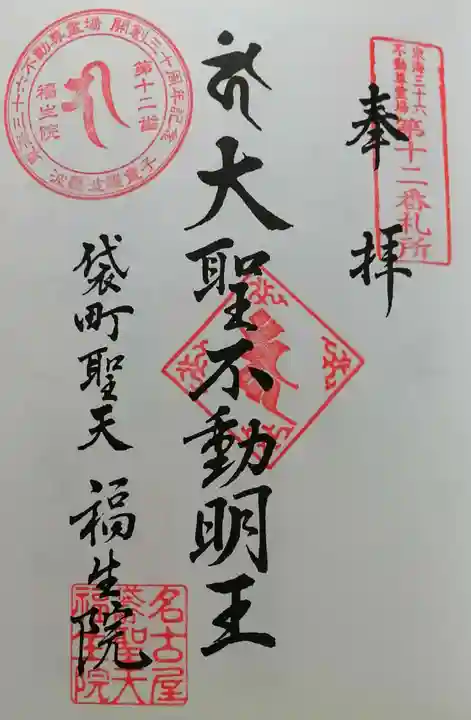 東海三十六
不動尊霊場
第十二番札所
奉拝
大聖不動明王
開創三十周年記念
第十二番
福生院
袋町聖天 福生院
名古屋
袋聖天
福生院